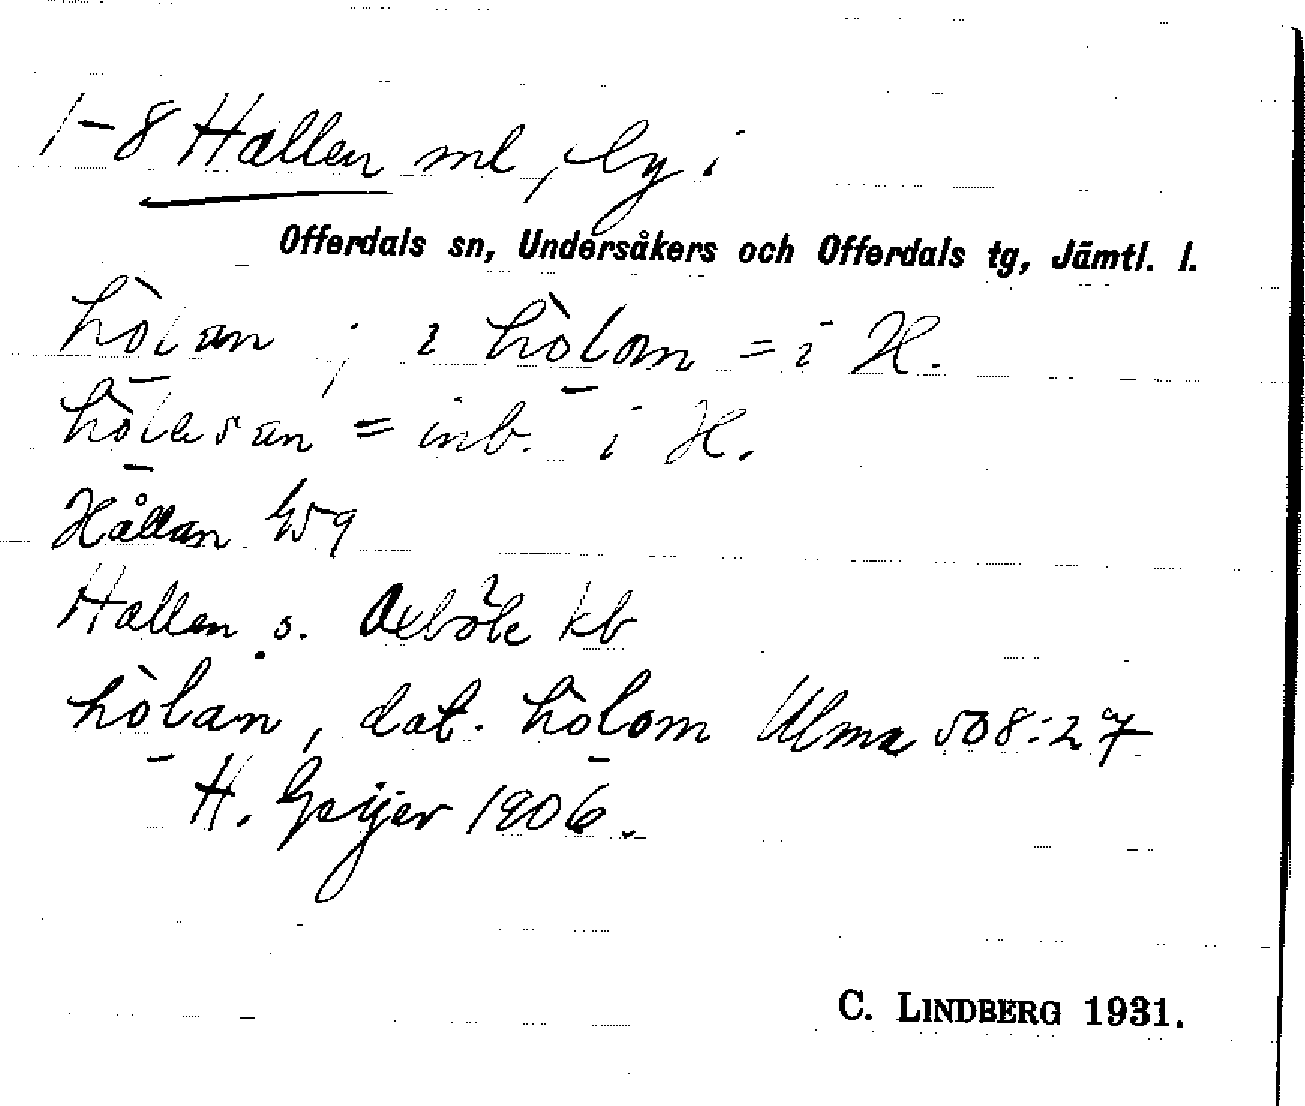 1-8 Hallen ml, by i
Offerdals sn, Undersåkers och Offerdals tg, Jämtl. l.
hò̱lan ; i hò̱lom = i H.
hò̱lesan = inb. i H.
Hållan
Hallen s. kb
hò̱lan, dat. hò̱lom Ulma 508:27
H. Geijer 1906.
C. LINDBERG 1931.